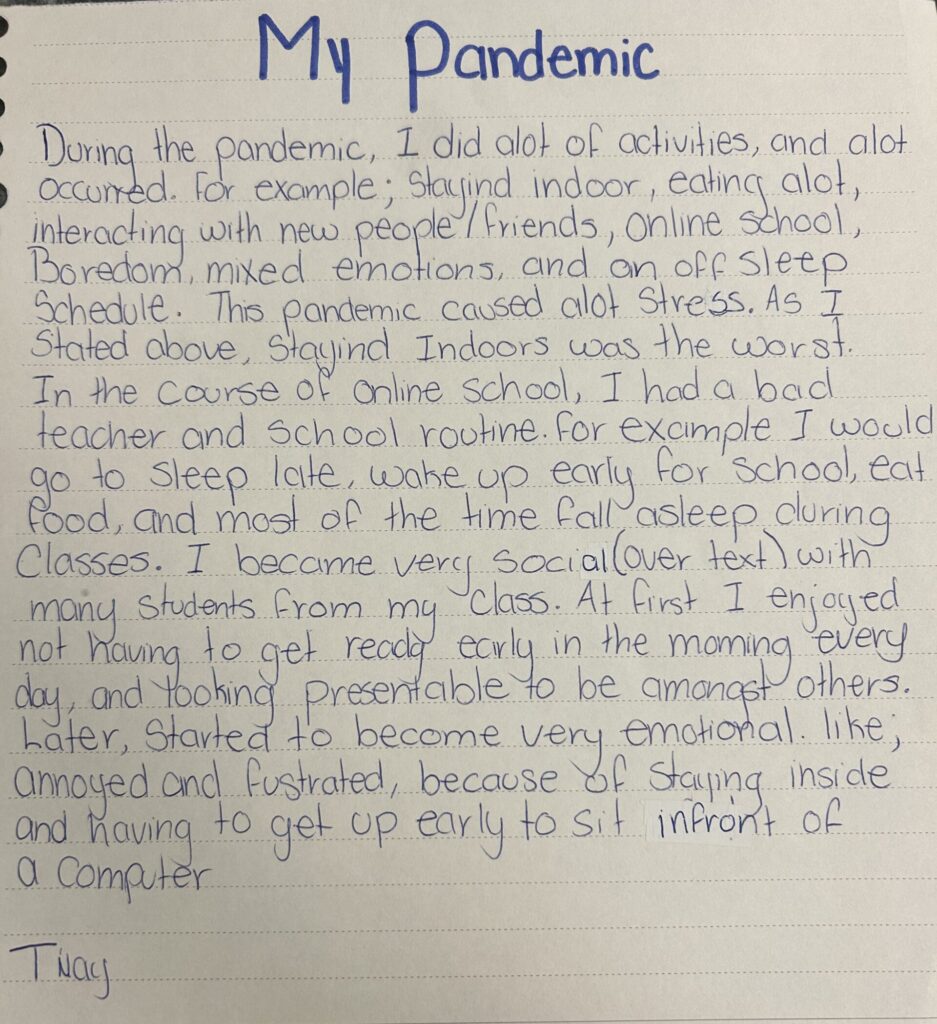 My Pandemic
During the pandemic, I did alot of activities, and alot
occurred. For example; Stayind indoor, eating alot,
interacting with new people/friends, Online school,
Boredom, mixed emotions, and an off sleep
Schedule. This pandemic caused alot Stress. As I
Stated above, Stayind Indoors was the worst.
In the course of online school, I had a bad
teacher and school routine. For example I would
go to sleep late, wake up early for school, eat
food, and most of the time fall asleep during
Classes. I became very social(over text) with
many students from my class. At first I enjoyed
not having to get ready early in the morning every
day, and looking presentable to be amongst others.
Later, Started to become very emotional. like;
annoyed and fustrated, because of staying inside
and having to get up early to sit infront of
a computer